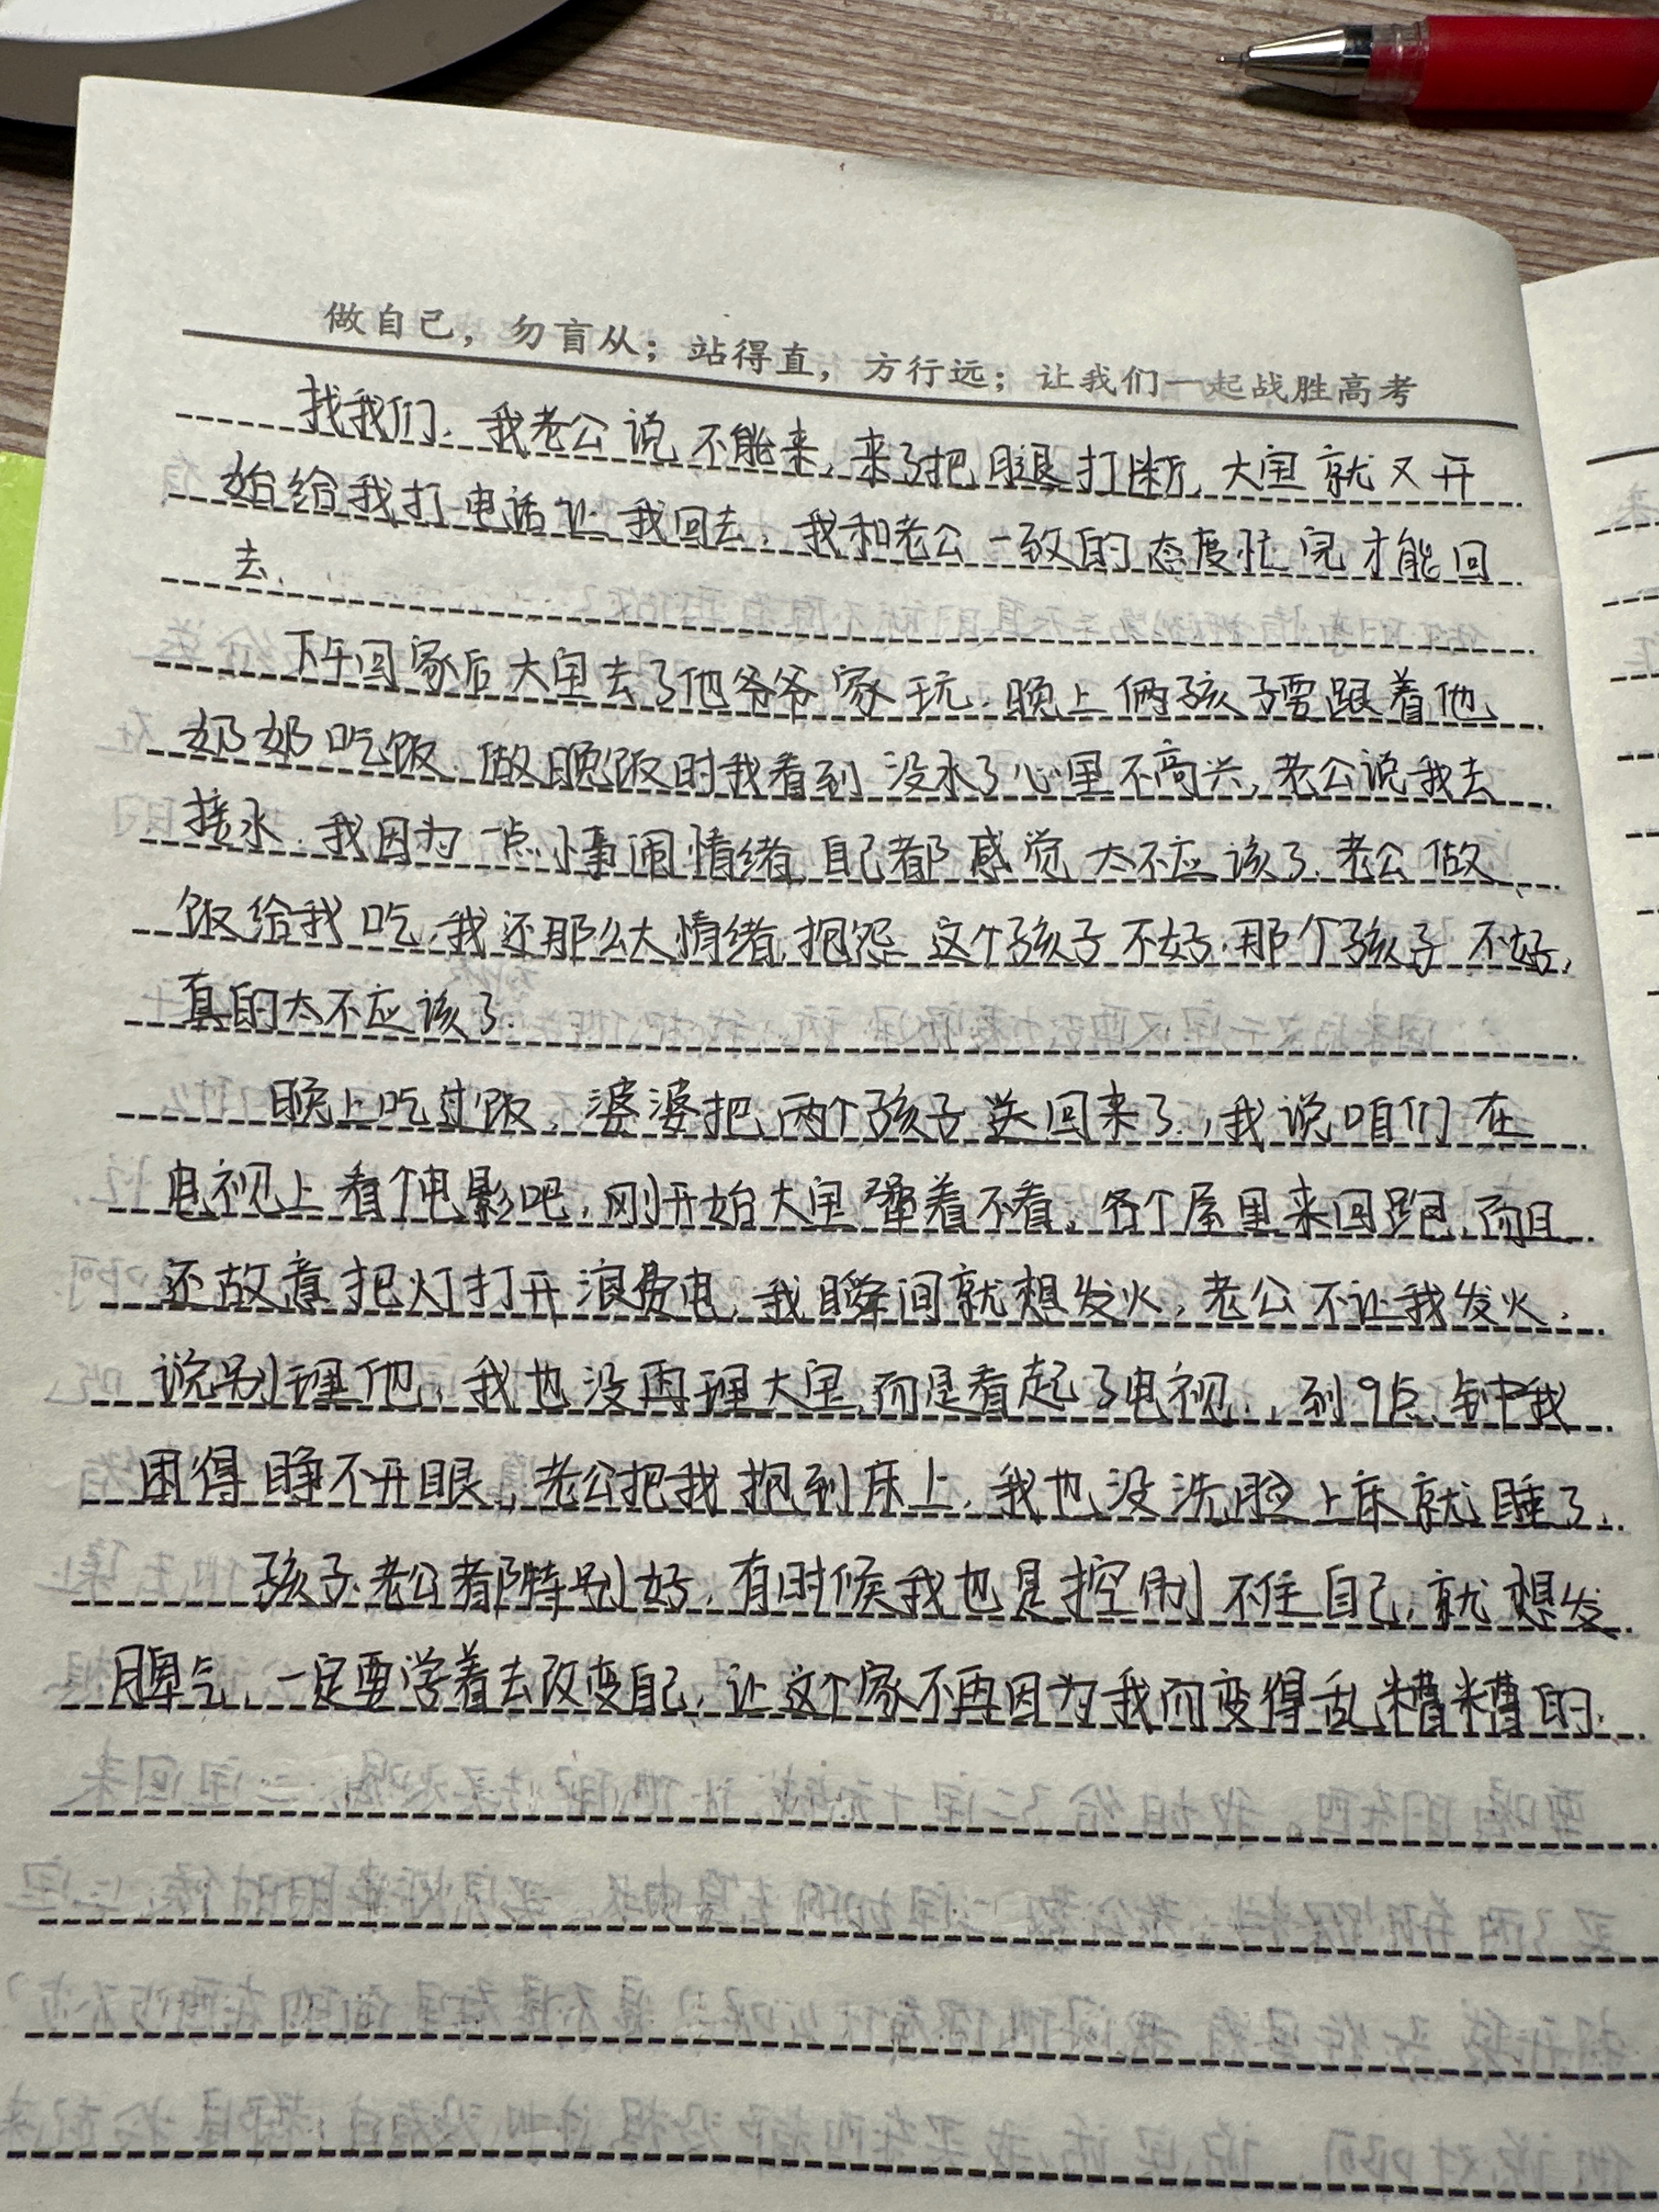 做自己，勿盲从；站得直，方行远；让我们一起战胜高考
找我们，我老公说不能来，来了把腿打断，大宝就又开
始给我打电话让我回去，我和老公一致的态度忙完才能回
去。
下午回家后大宝去了他爷爷家玩，晚上俩孩子要跟着他
奶奶吃饭，做晚饭时我看到没水了心里不高兴，老公说我去
接水，我因为一点小事闹情绪，自己都感觉太不应该了，老公做
饭给我吃，我还那么大情绪，抱怨这个孩子不好，那个孩子不好，
真的太不应该了。
晚上吃过饭，婆婆把两个孩子送回来了，我说咱们在
电视上看个电影吧，刚开始大宝犟着不看，各个屋里来回跑，而且
还故意把灯打开浪费电，我瞬间就想发火，老公不让我发火，
说别理他，我也没再理大宝，而是看起了电视，到9点钟我
困得睁不开眼，老公把我抱到床上，我也没洗脸上床就睡了。
孩子、老公都特别好，有时候我也是控制不住自己，就想发
脾气，一定要学着去改变自己，让这个家不再因为我而变得乱糟糟的。